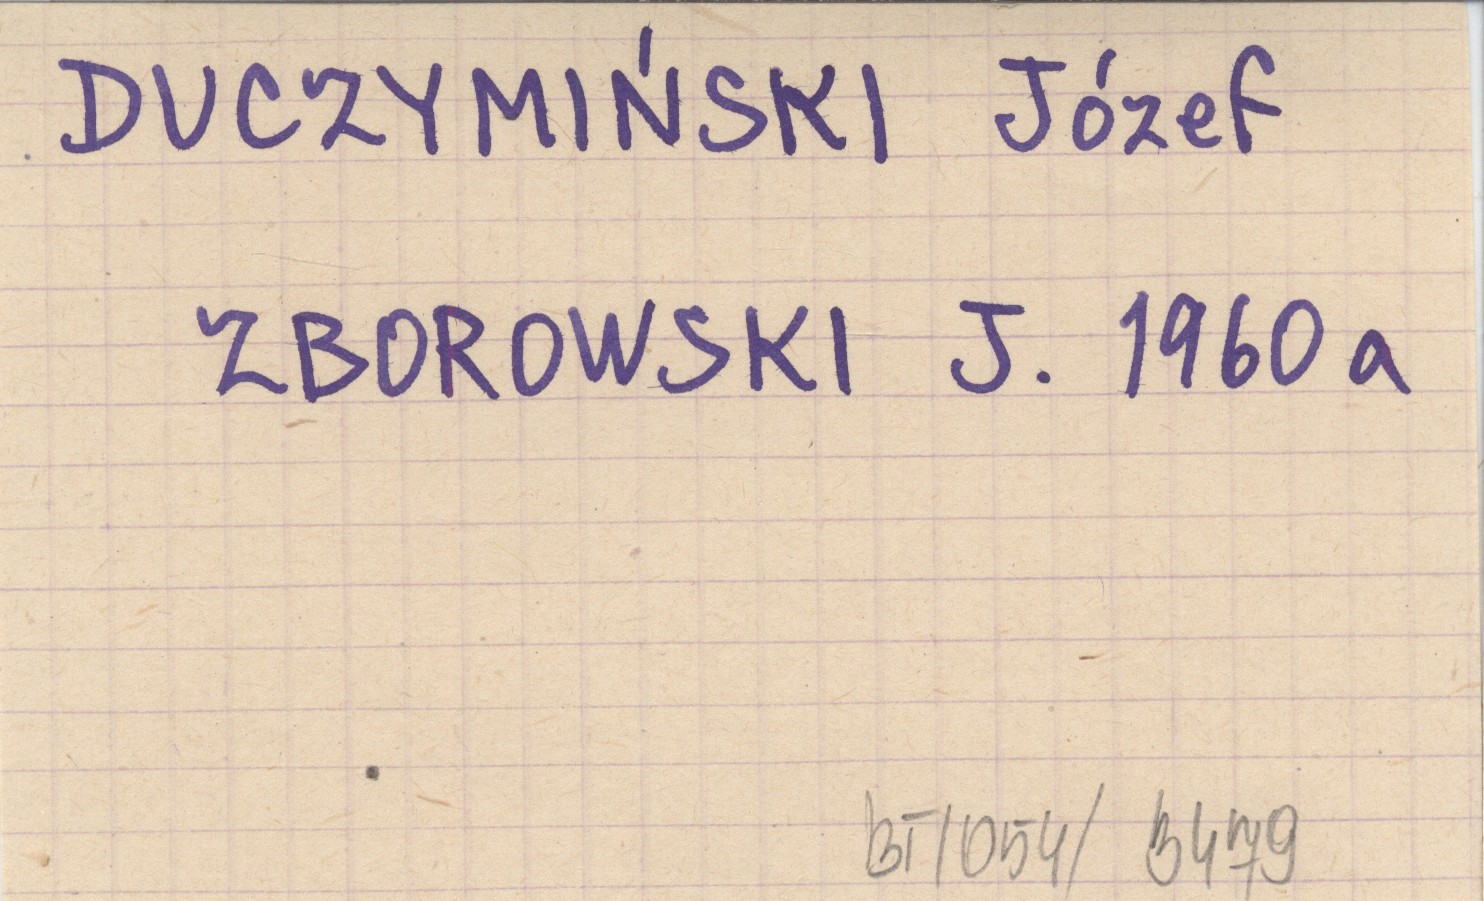 DUCZYMIŃSKI Józef
ZBOROWSKI J. 1960 a
BT/054/ 3479